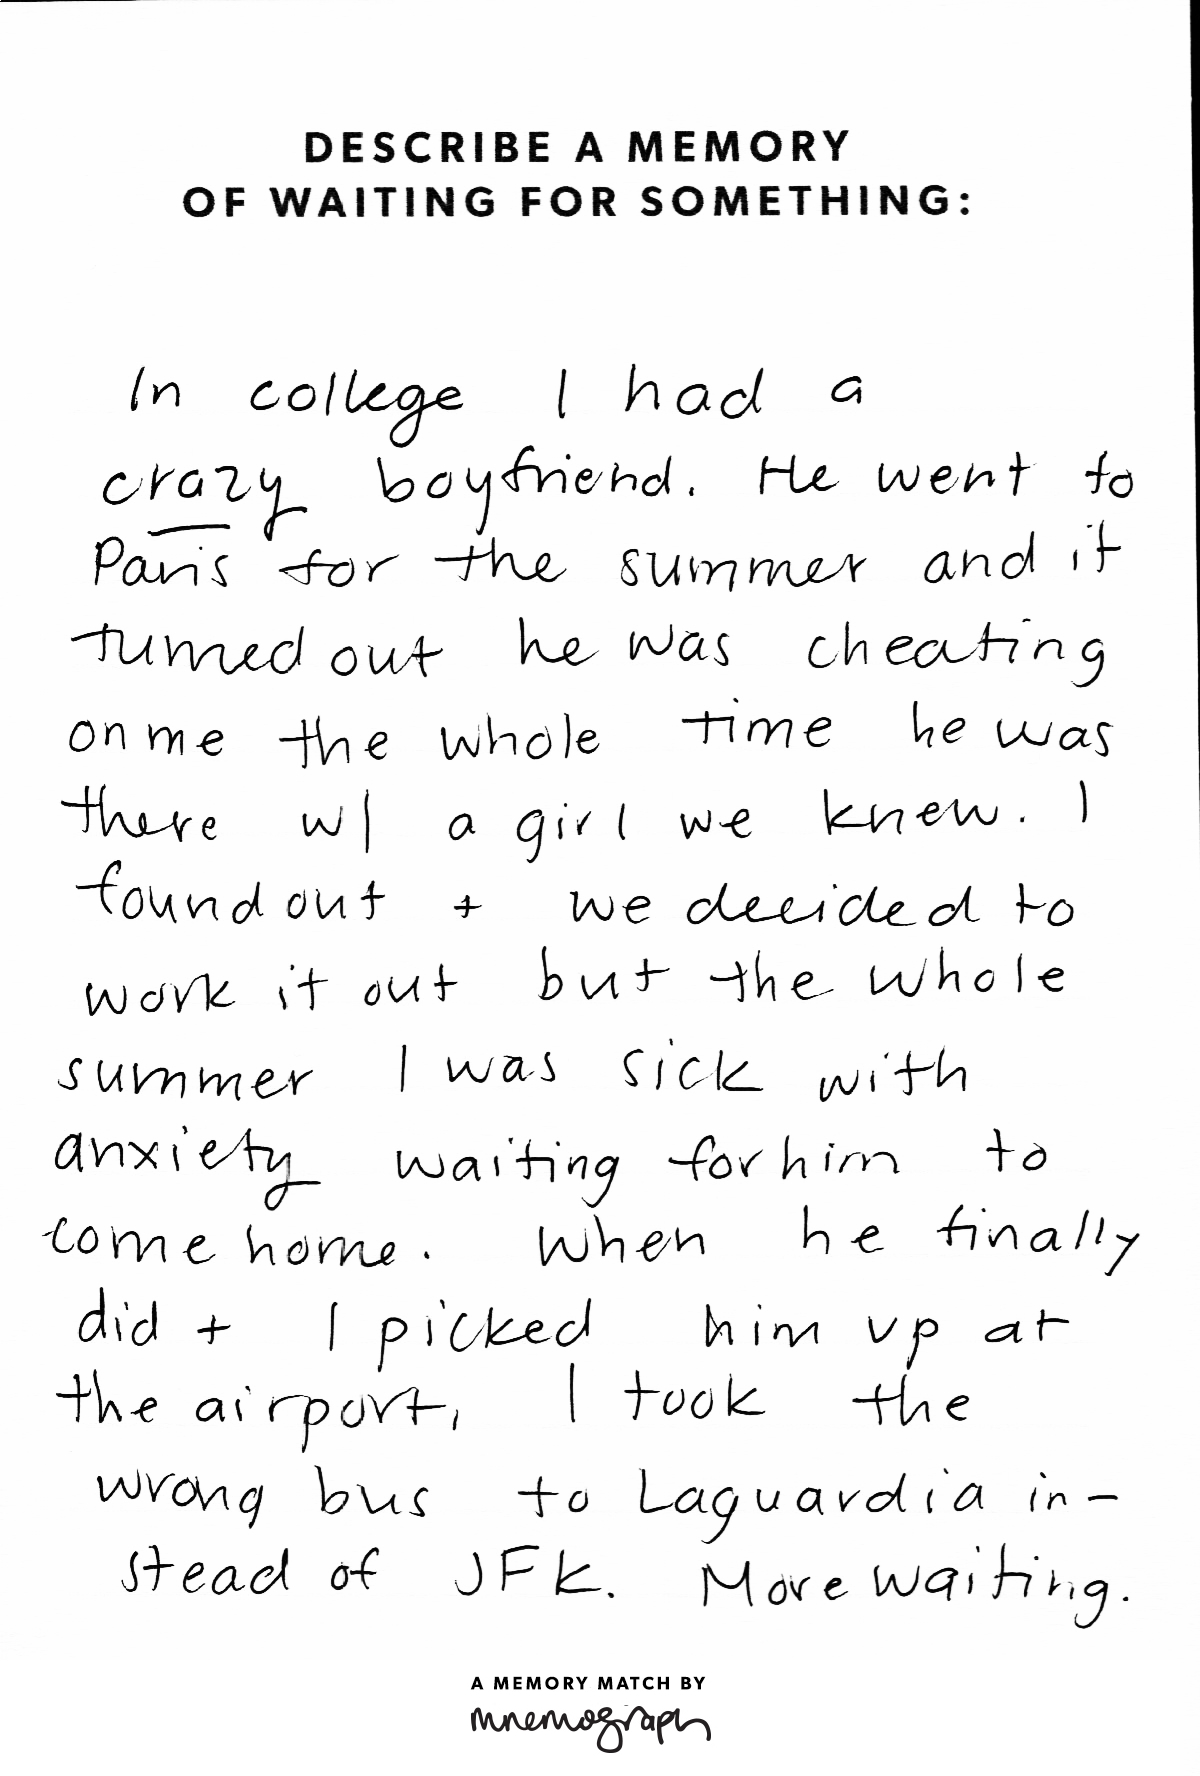 DESCRIBE A MEMORY
OF WAITING FOR SOMETHING:
In college I had a
crazy boyfriend. He went to
Paris for the summer and it
turned out he was cheating
on me the whole time he was
there w/ a girl we knew. I
found out + we decided to
work it out but the whole
summer I was sick with
anxiety waiting for him to
come home. When he finally
did + I picked him up at
the airport, I took the
wrong bus to Laguardia in-
stead of JFK. More waiting.
A MEMORY MATCH BY
mnemograph